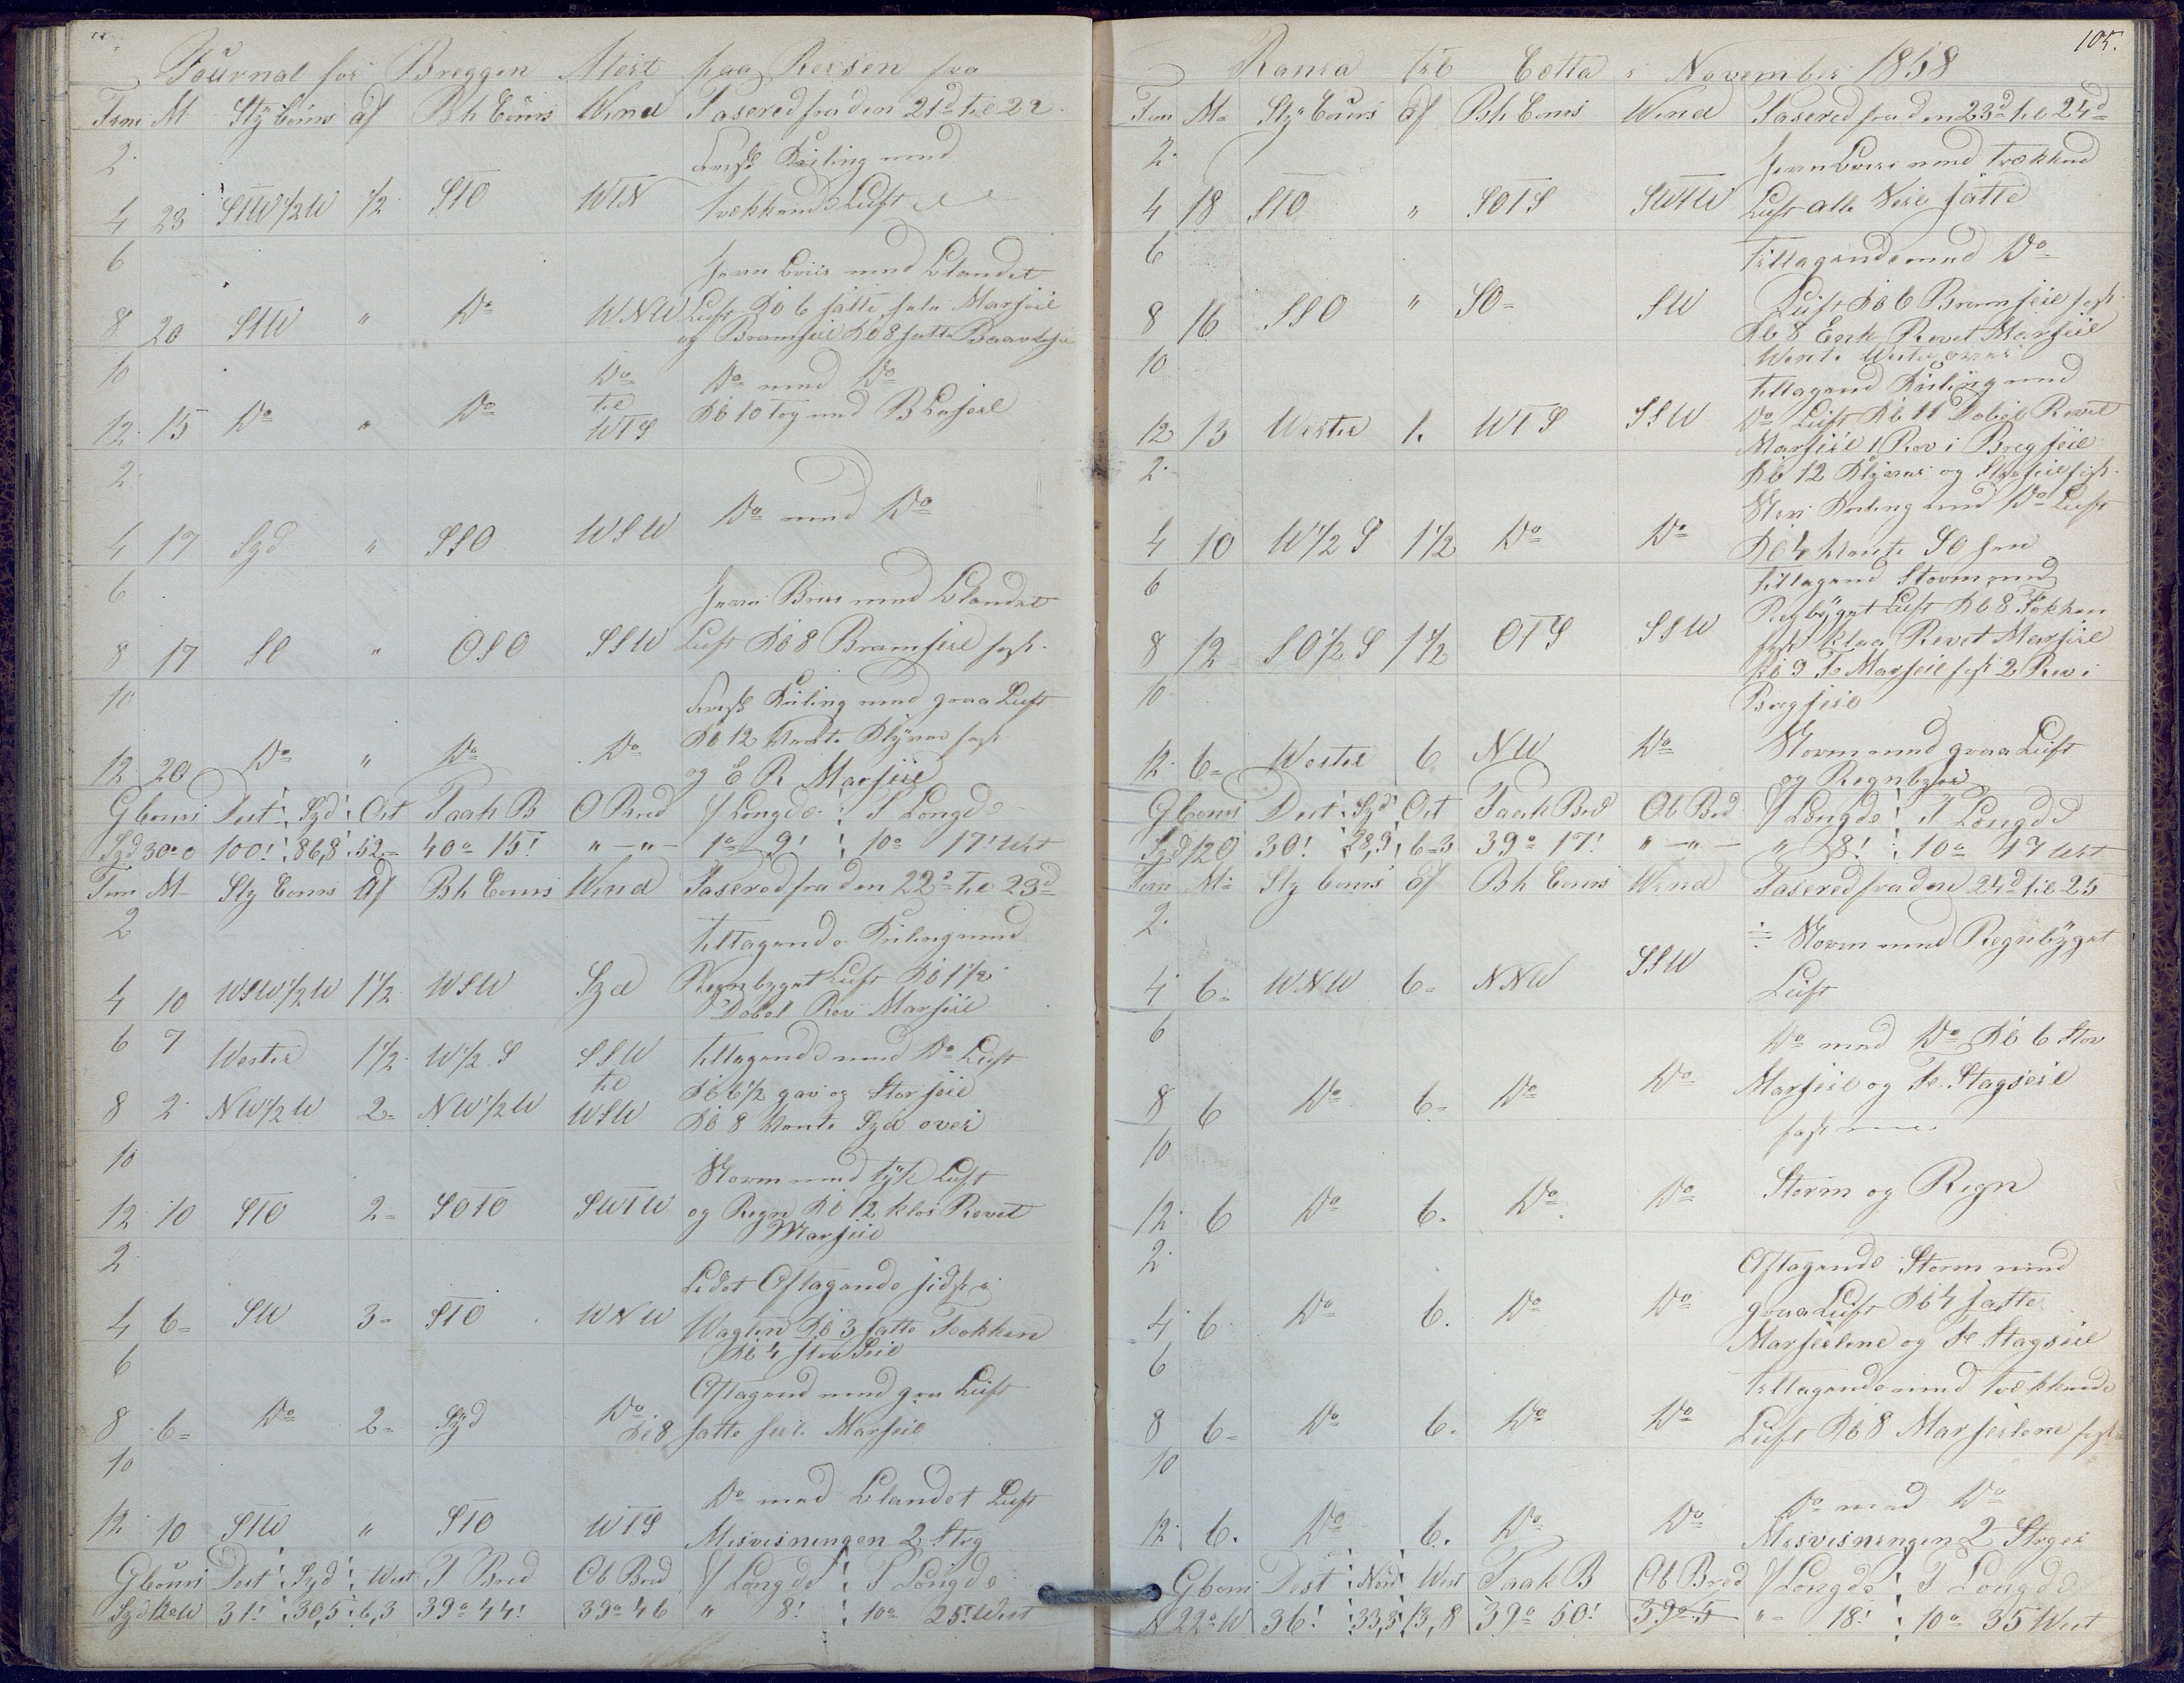 Journal for Breggen Mert paa Reisen fra
Time M Sty Cours af Bh Cours Wind Pasered fra den 21d til 22
2 Frisk Kuling med
4 23 STW 1/2 W 1/2 STO WTN trækkende Luft
6 Jevn Bris med Blandet
8 20 STW " Do WNW Luft Kl 6 satte Marseil
og Bramseil Kl 8 satte
10 Do Do med Do
12 15 Do " Do til WTS Kl 10 tog ind
2 Do med Do
4 17 Syd " SSO WSW
6 Jevn Bris med Blandet
8 17 SO " OSO SSW Luft Kl 8 Bramseil fast
10 Frisk Kuling med graa Luft
12 20 Do " Do Do Kl 12 Klyver fast
og E R Marseil
G Cours Dest Syd Ost Taalt B O Bred F Longde T Longde
Syd 30° O 100! 86,8 52 40° 15! " — " — 1° 9! 10° 17! West
Time M Sty Cours Af Bh Cours Wind Pasered fra den 22d til 23d
2 tiltagende Kuling med
4 10 WSW 1/2 W 1 1/2 WSW Syd Regnbyget Luft Kl 1 1/2
Dobel Rev Marseil
6 7 Wester 1 1/2 W 1/2 S SSW tiltagende med Do Luft
til Kl 6 1/2 gav os Storseil
8 2 NW 1/2 W 2 NW 1/2 W WSW Kl 8 Vente Syd over
10 Storm med tyk Luft
12 10 STO 2 SOTO SWTW og Regn Kl 12 klos Revet
Marseil
2 Lidet Aftagende sidst i
4 6 SW 3 STO WNW Wagten Kl 3 satte Fokken
Kl 4 Stor Seil
6 Aftagend med graa Luft
8 6 Do 2 Syd Do Kl 8 satte Marseil
10 Do med Blandet Luft
12 10 STW " STO WTS Misvisningen 2 Streg
G Cours Dest Syd West T Bred Ob Bred F Longde T Longde
Syd 12° W 31! 30,5 6,3 39° 44! 39° 46 " 8! 10° 25! West
105.
til Cetta i November 1858
Time M Sty Cours af Bh Cours Wind Pasered fra den 23d til 24d
2 Jevn Bris med trækkend
4 18 STO " SOTS SWTW Luft alle Seil satte
6 Tiltagende med Do
8 16 SSO " SO SW Luft Kl 6 Bramseil fast
Kl 8 Enk Revet Marseil
Vente Wester over
10 tiltagend Kuling med
12 13 Wester 1 WTS SSW Do Luft Kl 11 Dobel Revet
Marseil 1 Rev i Bregseil
2 Kl 12 Klyver og Storseil fast
Stiv Kuling med Do Luft
4 10 W 1/2 S 1 1/2 Do Do Kl 4 Vente SO
6 tiltagend Storm med
Regnbyget Luft Kl 8 Fokken
8 12 SO 1/2 S 1 1/2 OTS SSW fast Revet Marseil
Kl 9 Fo Marseil fast 2 Rev i
10 Bregseil
12 6 Wester 6 NW Do Storm med graa Luft
og Regnbyger
G Cours Dest Syd Ost Taalt Bred Ob Bred F Longde T Longde
Syd 12 O 30! 28,9 6-3 39° 17! " — " — " 8! 10° 17 West
Time M Sty Cours af Bh Cours Wind Pasered fra den 24d til 25
2 Storm med Regnbyget
4 6 WNW 6 NNW SSW Luft
6 Do med Do Kl 6 Stor
8 6 Do 6 Do Do Marseil og Fo. Stagseil
fast
10
12 6 Do 6. Do Do Storm og Regn
2 Aftagende Storm med
4 6 Do 6. Do Do graa Luft Kl 4 satte
Marseilene og Fo Stagseil
6 tiltagende med trækkende
8 6 Do 6. Do Do Luft Kl 8 Marseilene fast
10 Do med Do
12 6. Do 6. Do Do Misvisningen 2 Streger
G Cours Dest Nord West Taalt B Ob Bred F Longde T Longde
N 22° W 36! 33,3 13,8 39° 50! 39° 5 " 18! 10° 35 West